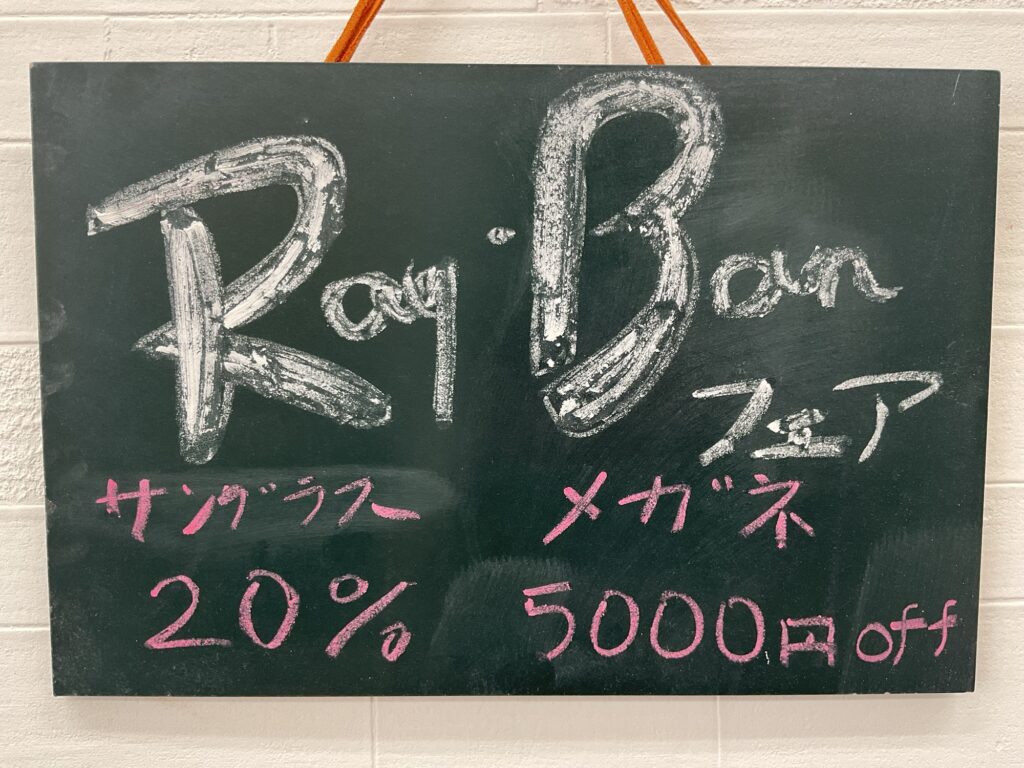 Ray・Ban
フェア
サングラス メガネ
20% 5000円off